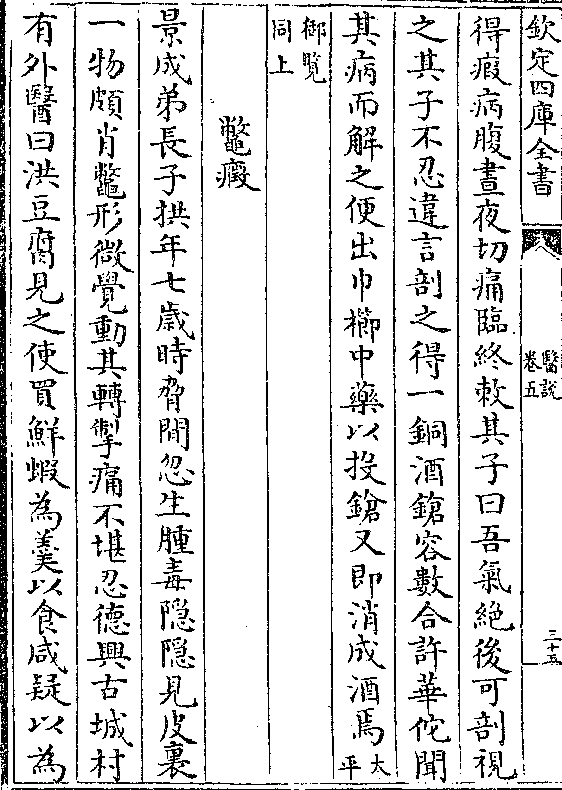 欽定四庫全書
醫說
卷五
三十五
得瘕病腹晝夜切痛臨終敕其子曰吾氣絶後可剖視
之其子不忍違言剖之得一銅酒鎗容數合許華佗聞
其病而解之便出巾櫛中藥以投鎗又即消成酒焉太平
御覽
同上
鼈瘕
景成弟長子拱年七歲時脅間忽生腫毒隠隠見皮裏
一物頗肖鼈形微覺動其轉掣痛不堪忍德興古城村
有外醫曰洪豆腐見之使買鮮蝦為羮以食咸疑以為